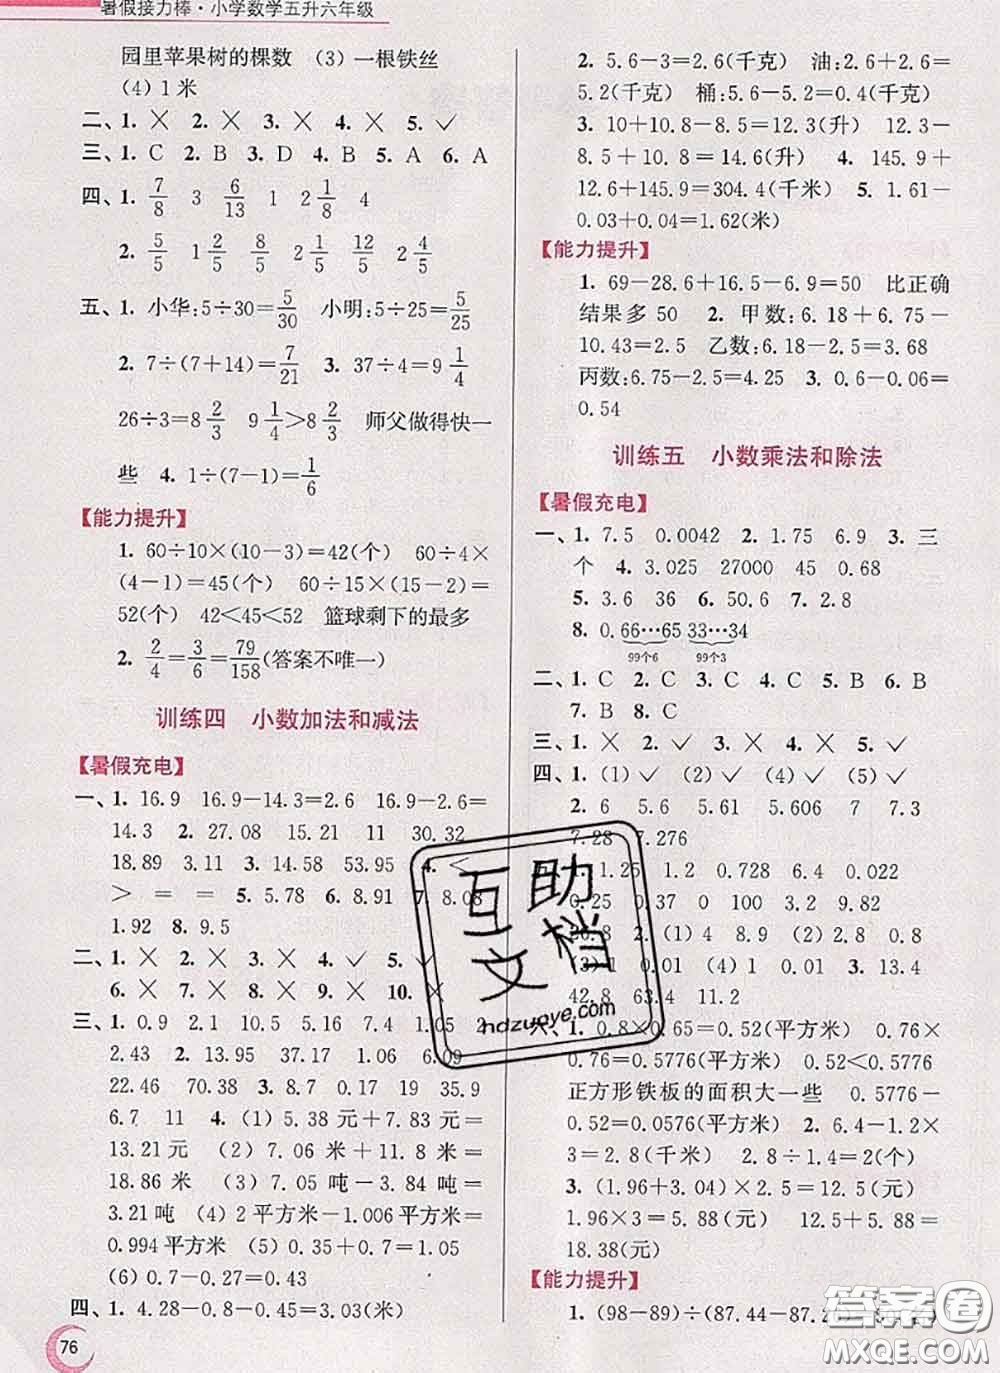 暑假接力棒·小学数学五升六年级
园里苹果树的棵数 (3) 一根铁丝
(4) 1米
二、1. × 2. × 3. × 4. × 5. ✓
三、1. C 2. B 3. D 4. B 5. A 6. A
四、1. 7/8 3 6/13 1 2 1/8 4
2. 5/5 1 2/5 8/5 2 1/5 12/5 2 4/5
五、1. 小华:5÷30=5/30 小明:5÷25=5/25
2. 7÷(7+14)=7/21 3. 37÷4=9 1/4
26÷3=8 2/3 9 1/4>8 2/3 师父做得快一
些 4. 1÷(7-1)=1/6
【能力提升】
1. 60÷10×(10-3)=42(个) 60÷4×
(4-1)=45(个) 60÷15×(15-2)=
52(个) 42<45<52 篮球剩下的最多
2. 2/4=3/6=79/158(答案不唯一)
训练四 小数加法和减法
【暑假充电】
一、1. 16.9 16.9-14.3=2.6 16.9-2.6=
14.3 2. 27.08 15.21 11 30.32
18.89 3.11 3. 14.58 53.95 4. <
> = = 5. 5.78 6. 8.91 7. 8.08
1.92 8. 9.5
二、1. × 2. × 3. × 4. ✓ 5. ✓
6. × 7. × 8. × 9. × 10. ×
三、1. 0.9 2.1 10.5 5.16 7.4 1.05 2
2.43 2. 37.17 1.39 11.46 6.09
22.46 70.38 3. 8.7 0.17 19 15.9
6.7 11 4. (1) 5.38元+7.83元=
13.21元 (2) 7.06米+11.8米=
18.86米 (3) 7.05吨-3.84吨=
3.21吨 (4) 2平方米-1.006平方米=
0.994平方米 (5) 0.35+0.7=1.05
(6) 0.7-0.27=0.43
四、1. 4.28-0.8-0.45=3.03(米)
76
2. 5.6-3=2.6(千克) 油:2.6+2.6=
5.2(千克) 桶:5.6-5.2=0.4(千克)
3. 10+10.8-8.5=12.3(升) 12.3-
8.5+10.8=14.6(升) 4. 145.9+
12.6+145.9=304.4(千米) 5. 1.61-
0.03+0.04=1.62(米)
【能力提升】
1. 69-28.6+16.5-6.9=50 比正确
结果多50 2. 甲数:6.18+6.75-
10.43=2.5 乙数:6.18-2.5=3.68
丙数:6.75-2.5=4.25 3. 0.6-0.06=
0.54
训练五 小数乘法和除法
【暑假充电】
一、1. 7.5 0.0042 2. 1.75 6.9 3. 三
个 4. 3.025 27000 45 0.68
5. 3.6 36 6. 50.6 7. 2.8
8. 0.66…65 33…34
99个6 99个3
二、1. C 2. C 3. C 4. C 5. B 6. B
7. B 8. C
三、1. × 2. ✓ 3. × 4. × 5. ✓
四、1. (1) ✓ (2) ✓ (4) ✓ (5) ✓
2. 6 5.6 5.61 5.606 7 7.3
7.28 7.276
1. 1.25 1.2 0.728 6.4 0.022
0.25 0.37 0 100 3.2 9.82
2. (1) 4 8.9 (2) 2.8 0.8
1 0.01 (4) 1 0.01 3. 13.4
42.8 63.4 11.2
1. 0.8×0.65=0.52(平方米) 0.76×
0.76=0.5776(平方米) 0.52<0.5776
正方形铁板的面积大一些 0.5776-
0.52=0.0576(平方米) 2. 6.4-1.2×
3=2.8(千米) 2.8÷1.4=2(时)
3. (1.96+3.04)×2.5=12.5(元)
1.96×3=5.88(元) 12.5+5.88=
18.38(元)
【能力提升】
1. (98-89)÷(87.44-87.2
互助文档
hdzuoye.com
答案圈
MXQE.COM